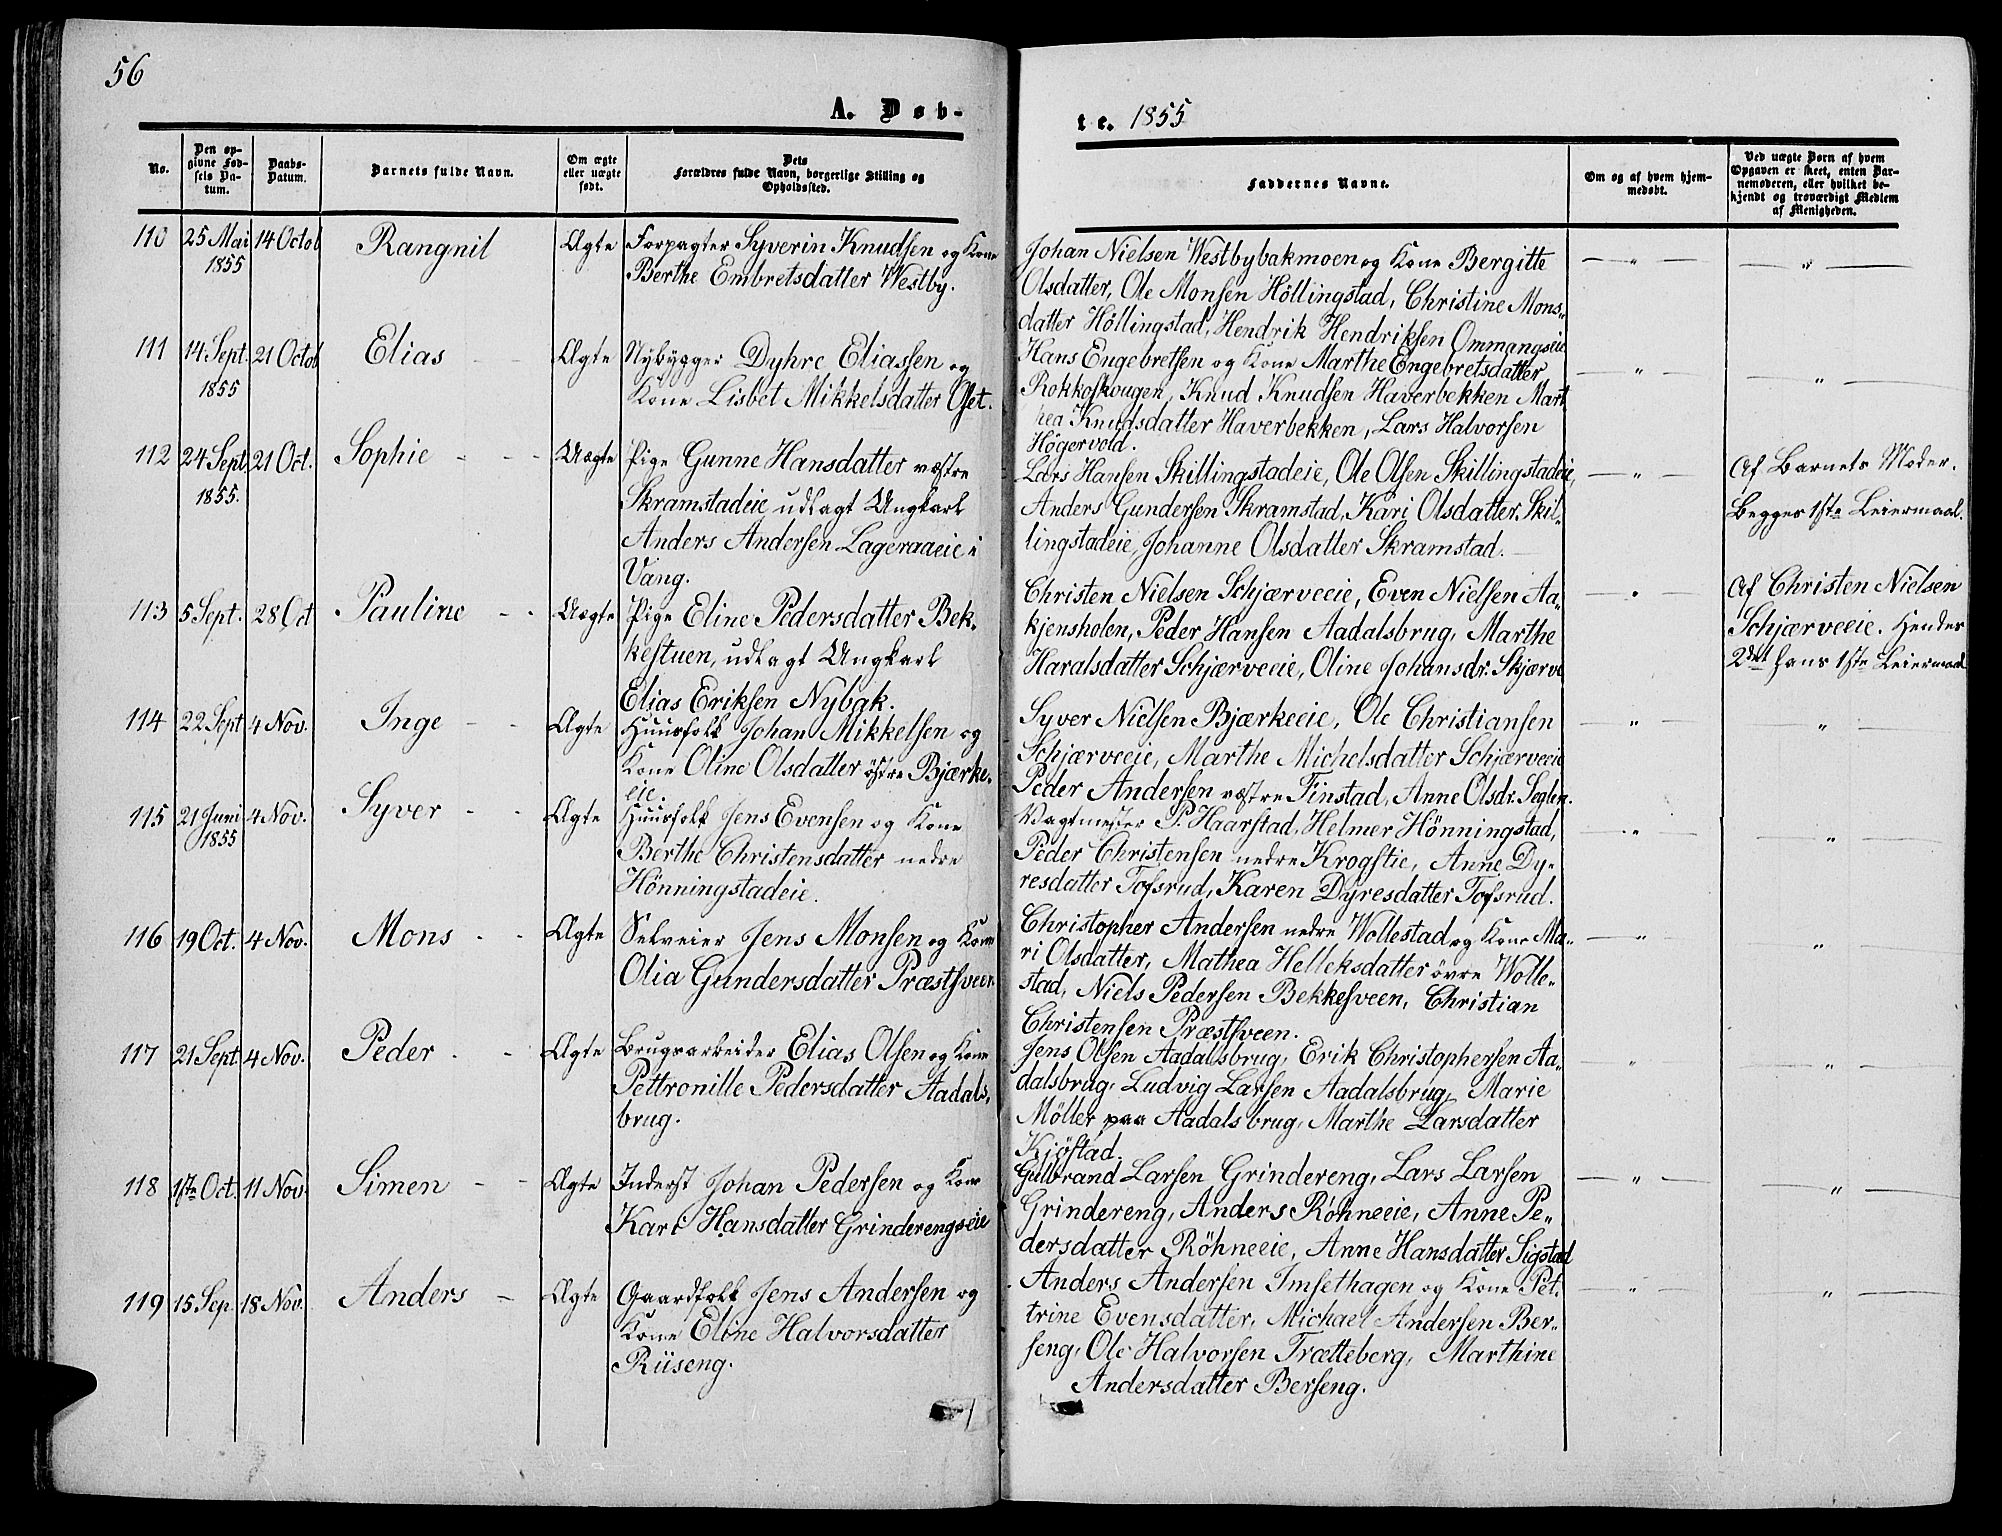 56
A. Døb-
te. 1855
No.
Den op-
givne Fød-
sels Da-
tum.
Daabs-
Datum.
Barnets fulde Navn.
Om ægte
eller uægte
født.
Dets
Forældres fulde Navn, borgerlige Stilling og
Opholdssted.
Faddernes Navne.
Om og af hvem hjem-
medøbt.
Ved uægte Børn af hvem
Opgaven er skeet, enten Bar-
nemoderen, eller hvilket be-
kjendt og troværdigt Medlem
af Menigheden.
110 25 Mai 14 Octob Rangnil Ægte Forpagter Syverin Knudsen og Kone
1855 Berthe Embretsdatter Westby.
Johan Nielsen Westbybakmoen og Kone Bergitte
Olsdatter, Ole Monsen Höllingstad, Christine Mons-
datter Höllingstad, Hendrik Hendriksen Ommangseie
111 14 Sept 21 Octob Elias Ægte Nybygger Dyhre Eliassen og
1855 Kone Lisbet Mikkelsdatter Oset.
Hans Engebretsen og Kone Marthe Engebretsdatter
Rokkoskougen, Knud Knudsen Haverbekken Mart
hea Knudsdatter Haverbekken, Lars Halvorsen
Högervold.
112 24 Sept 21 Oct. Sophie Uægte Pige Gunne Hansdatter væstre
1855. Skramstadeie udlagt Ungkarl
Anders Andersen Lageraaeie i
Vang.
Lars Hansen Skillingstadeie, Ole Olsen Skillingstadeie,
Anders Gundersen Skramstad, Kari Olsdatter Skil-
lingstadeie, Johanne Olsdatter Skramstad.
Af Barnets Moder.
Begges 1ste Leiermaal.
113 5 Sept. 28 Oct Pauline Uægte Pige Eline Pedersdatter Bek-
kestuen, udlagt Ungkarl
Elias Eriksen Nybak.
Christen Nielsen Schjærveeie, Even Nielsen Aa-
kjensholen, Peder Hansen Aadalsbrug, Marthe
Haralsdatter Schjærveeie, Oline Johansdr. Skjærve
Af Christen Nielsen
Schjærveeie. Hendes
2det hans 1ste Leiermaal
114 22 Sept 4 Nov. Inge Ægte Huusfolk Johan Mikkelsen og
Kone Oline Olsdatter östre Bjærke-
eie.
Syver Nielsen Bjærkeeie, Ole Christiansen
Schjærveeie, Marthe Michelsdatter Schjærveeie
Peder Andersen væstre Finstad, Anne Olsdr. Seglen.
115 21 Juni 4 Nov. Syver Ægte Huusfolk Jens Evensen og Kone
1855 Berthe Christensdatter nedre
Hönningstadeie.
Vagtmester P. Haarstad, Helmer Hönningstad,
Peder Christensen nedre Krogstie, Anne Dy-
resdatter Tofsrud, Karen Dyresdatter Tofsrud.
116 19 Oct. 4 Nov. Mons Ægte Selveier Jens Monsen og Kone
Olia Gundersdatter Præstsveen.
Christopher Andersen nedre Wollestad og Kone Ma-
ri Olsdatter, Mathea Helleksdatter övre Wolle-
stad, Niels Pedersen Bekkesveen, Christian
Christensen Præstsveen.
117 21 Sept 4 Nov. Peder Ægte Brugsarbeider Elias Olsen og Kone
Pettronille Pedersdatter Aadals-
brug.
Jens Olsen Aadalsbrug, Erik Christophersen Aa-
dalsbrug, Ludvig Larsen Aadalsbrug, Marie
Möller paa Aadalsbrug, Marthe Larsdatter
Kjöstad.
118 1ste Oct. 11 Nov. Simen Ægte Inderst Johan Pedersen og Kone
Kari Hansdatter Grinderengseie
Gulbrand Larsen Grindereng, Lars Larsen
Grindereng, Anders Röhneeie, Anne Pe-
dersdatter Röhneeie, Anne Hansdatter Sigstad
119 15 Sep. 18 Nov. Anders Ægte Gaardfolk Jens Andersen og
Kone Eline Halvorsdatter
Riiseng.
Anders Andersen Imsethagen og Kone Pet-
trine Evensdatter, Michael Andersen Ber-
seng, Ole Halvorsen Trætteberg, Marthine
Andersdatter Berseng.